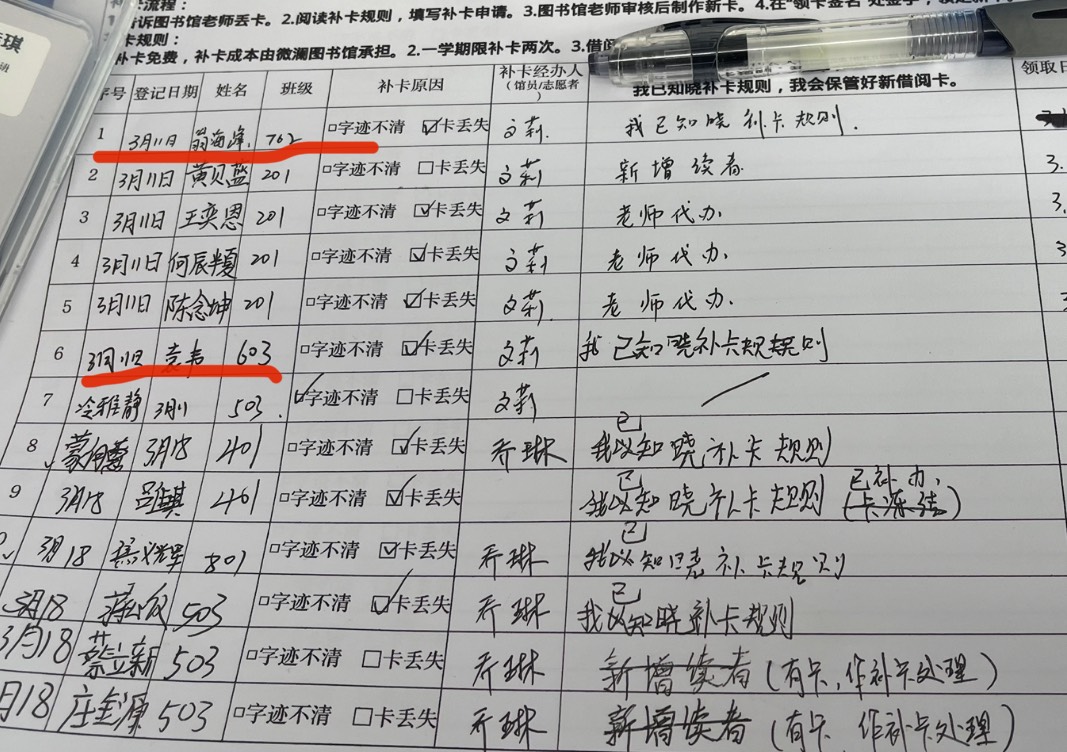 琪
班
卡流程：
告诉图书馆老师丢卡。2.阅读补卡规则，填写补卡申请。3.图书馆老师审核后制作新卡。4.在"领卡签名"处签字，领走新卡
卡规则：
补卡免费，补卡成本由微澜图书馆承担。2.一学期限补卡两次。3.借阅
序号 登记日期 姓名 班级 补卡原因 补卡经办人（馆员/志愿者） 我已知晓补卡规则，我会保管好新借阅卡。 领取日
1 3月11日 翁海峰 702 □字迹不清 ☑卡丢失 文莉 我已知晓补卡规则.
2 3月11日 黄贝蓝 201 □字迹不清 □卡丢失 文莉 新增读者 3.
3 3月11日 王奕恩 201 □字迹不清 ☑卡丢失 文莉 老师代办. 3.
4 3月11日 何辰半夏 201 □字迹不清 ☑卡丢失 文莉 老师代办. 3
5 3月11日 陈念坤 201 □字迹不清 ☑卡丢失 文莉 老师代办.
6 3月11日 袁韦 603 □字迹不清 ☑卡丢失 文莉 我已知晓补卡规则
7 冷雅静 3月11 503. ☑字迹不清 □卡丢失 文莉
8 3月18 401 □字迹不清 ☑卡丢失 乔琳 我已知晓补卡规则
9 3月18 401 □字迹不清 ☑卡丢失 我已知晓补卡规则 已补办.（卡冻结）
3月18 801 □字迹不清 ☑卡丢失 乔琳 我已知晓补卡规则
3月18 503 □字迹不清 ☑卡丢失 乔琳 我已知晓补卡规则
3月18 蔡立新 503 □字迹不清 □卡丢失 乔琳 新增读者（有卡,作补卡处理）
月18 庄金源 503 □字迹不清 □卡丢失 乔琳 新增读者（有卡 作补卡处理）